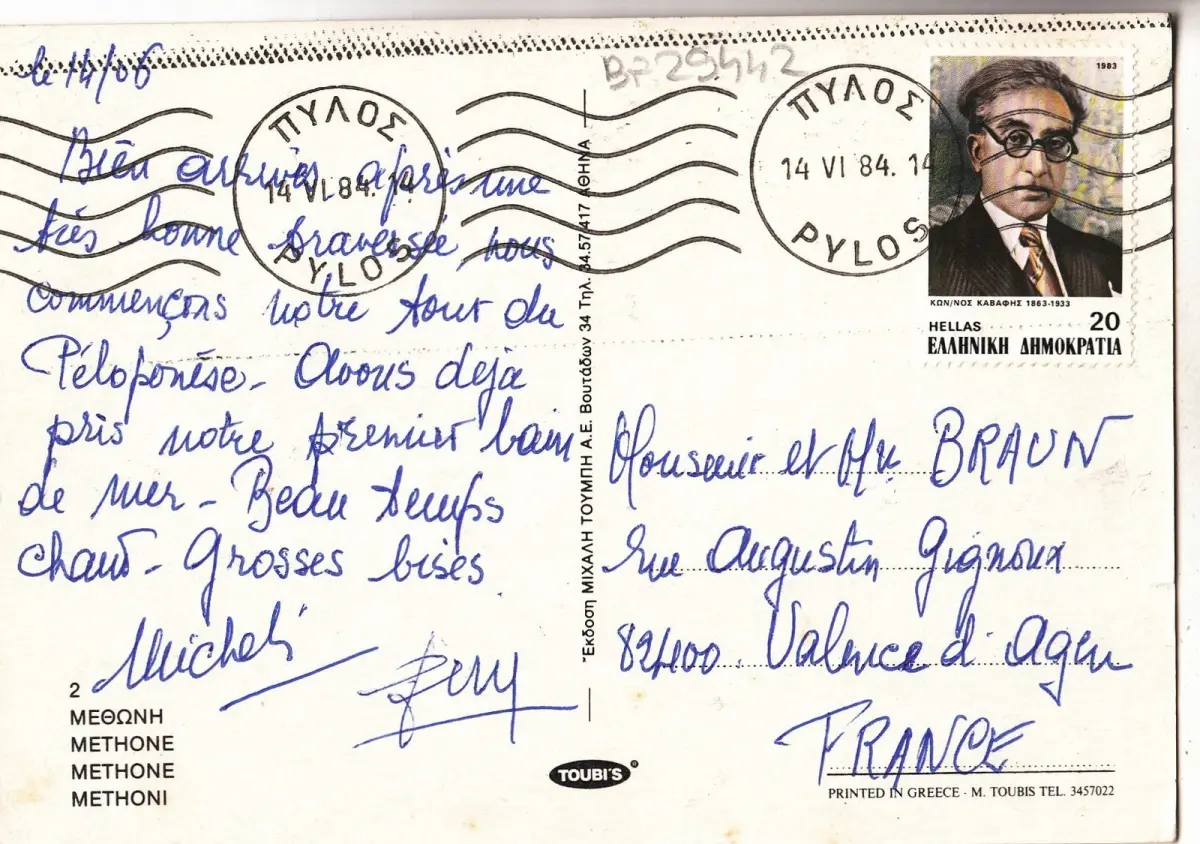 le 14/06
BP 29442
ΠΥΛΟΣ
14 VI 84. 14
PYLOS
ΠΥΛΟΣ
14 VI 84. 14
PYLOS
1983
ΚΩΝ/ΝΟΣ ΚΑΒΑΦΗΣ 1863-1933
HELLAS 20
ΕΛΛΗΝΙΚΗ ΔΗΜΟΚΡΑΤΙΑ
Bien arrivés après une
très bonne traversée, nous
commençons notre tour du
Péloponèse - Avons déjà
pris notre premier bain
de mer - Beau temps
chaud - Grosses bises
Έκδοση ΜΙΧΑΛΗ ΤΟΥΜΠΗ Α.Ε. Βουτάδων 34 Τηλ. 34.57.417 ΑΘΗΝΑ
Monsieur et Me BRAUN
rue Augustin Gignoux
82400 Valence d'Agen
FRANCE
2
ΜΕΘΩΝΗ
METHONE
METHONE
METHONI
TOUBI'S
PRINTED IN GREECE - M. TOUBIS TEL. 3457022